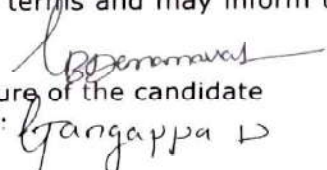 terms and may inform
ure of the candidate
: Gangappa D